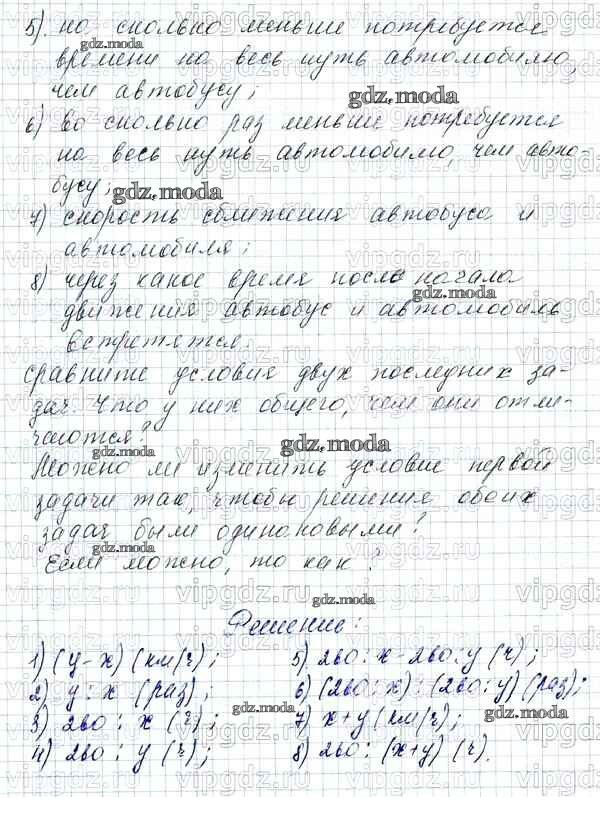 5). на сколько меньше потребуется
времени на весь путь автомобилю,
чем автобусу;
6) во сколько раз меньше потребуется
на весь путь автомобилю, чем авто-
бусу;
7) скорость сближения автобуса и
автомобиля;
8) через какое время после начала
движения автобус и автомобиль
встретятся.
Сравните условия двух последних за-
дач. Что у них общего, чем они отли-
чаются?
Можно ли изменить условие первой
задачи так, чтобы решения обоих
задач были одинаковыми?
Если можно, то как?
Решение:
1) (y-x) (км/ч);
2) y:x (раз);
3) 240 : x (ч);
4) 240 : y (ч);
5) 240:x-240:y (ч);
6) (240:x):(240:y) (раз);
7) x+y (км/ч);
8) 240: (x+y) (ч).
gdz.moda
vipgdz.ru